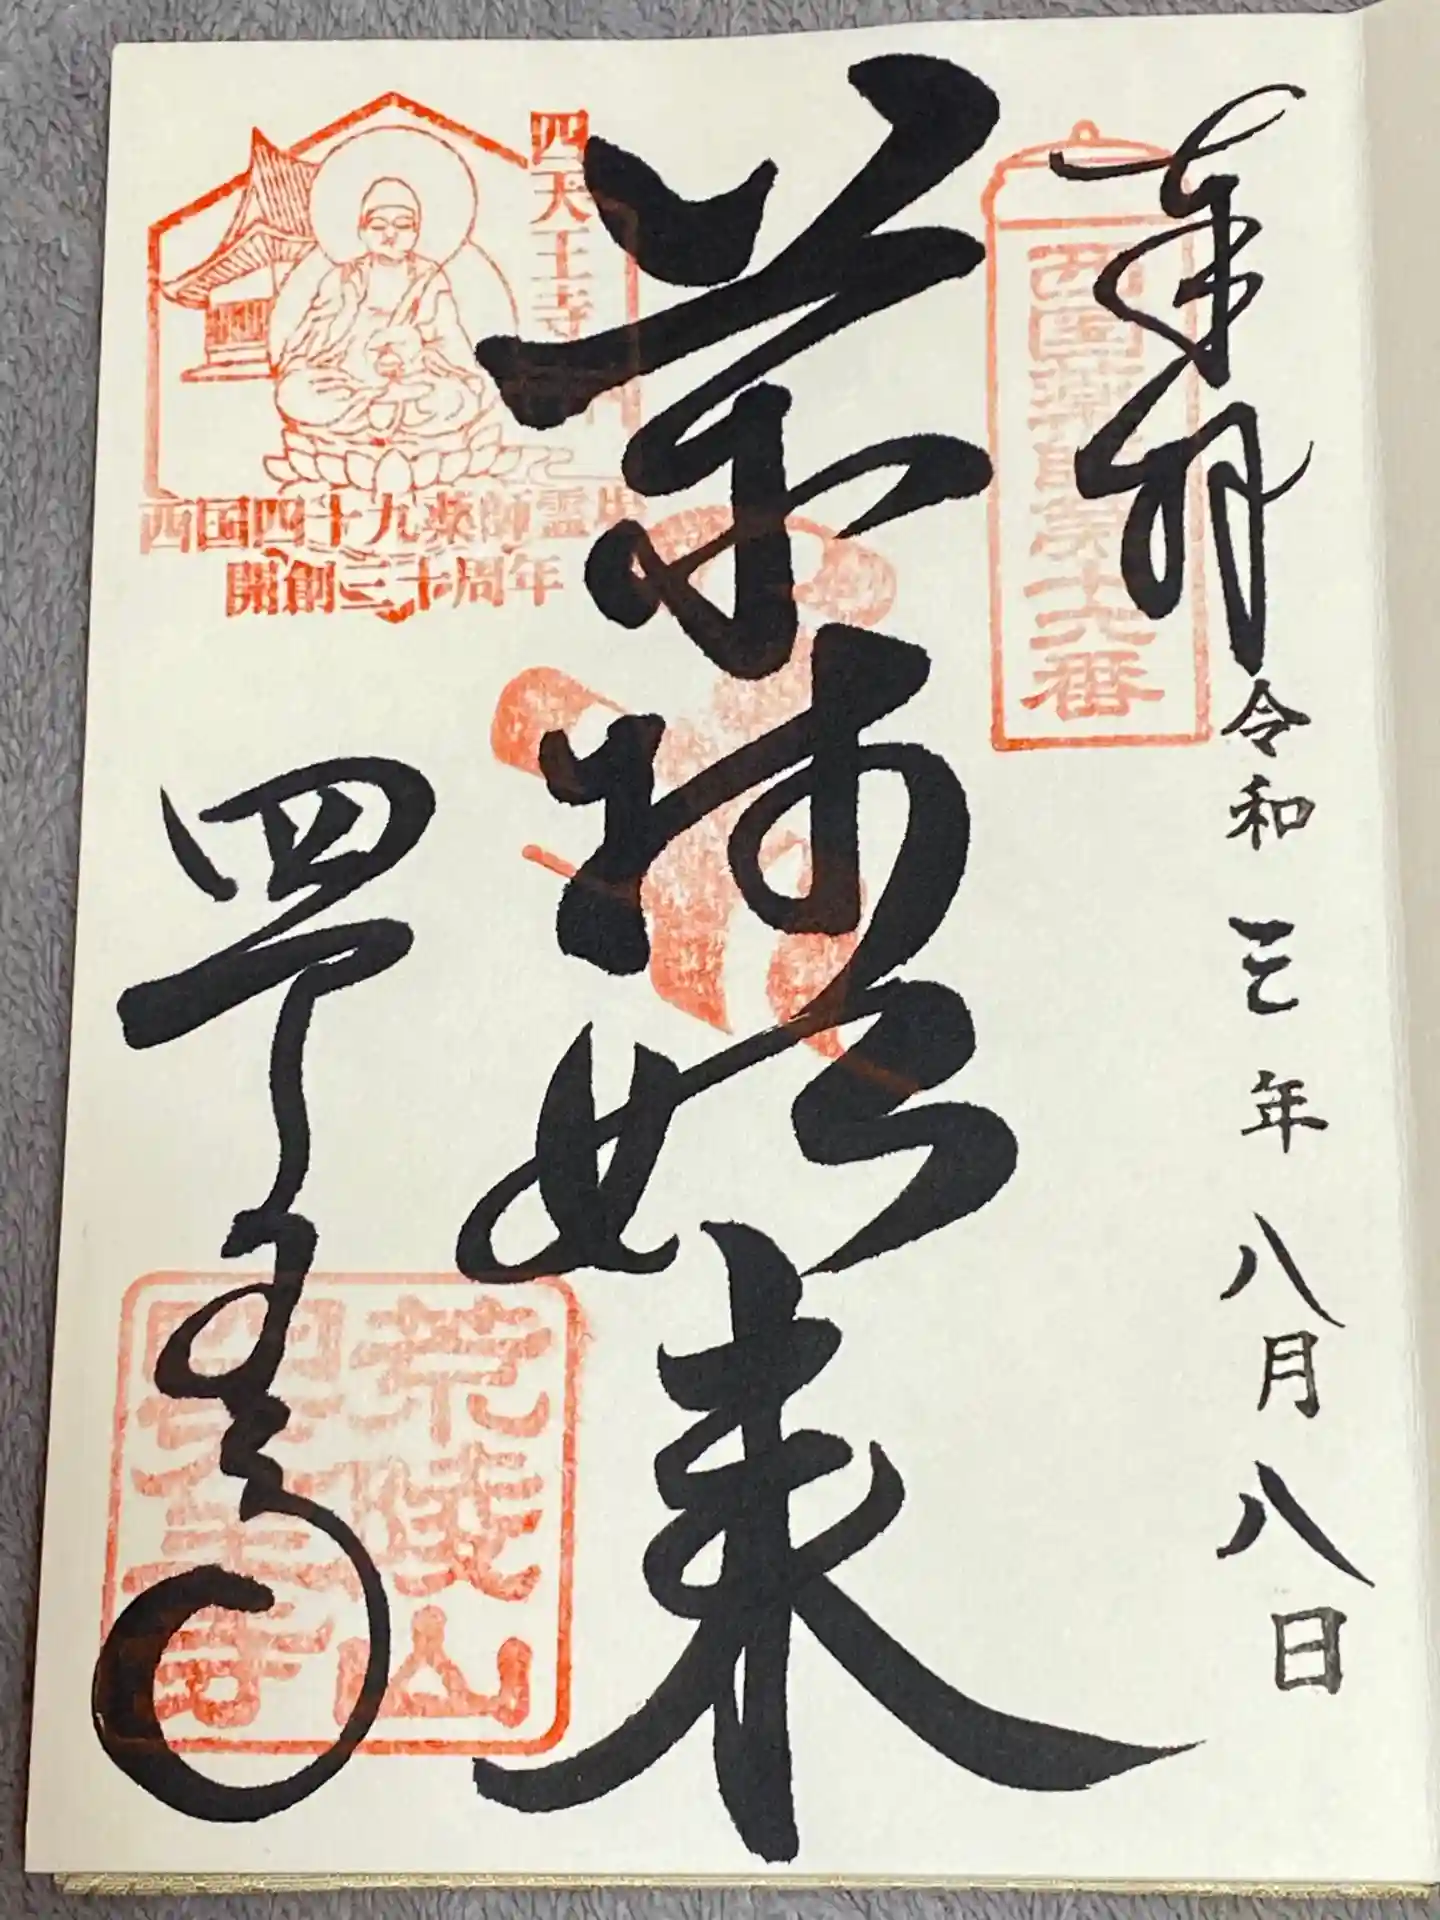 奉拝
令和三年八月八日
西国薬師第十六番
薬師如来
四天王寺
四天王寺
西国四十九薬師霊場
開創三十周年
荒陵山
四天王寺